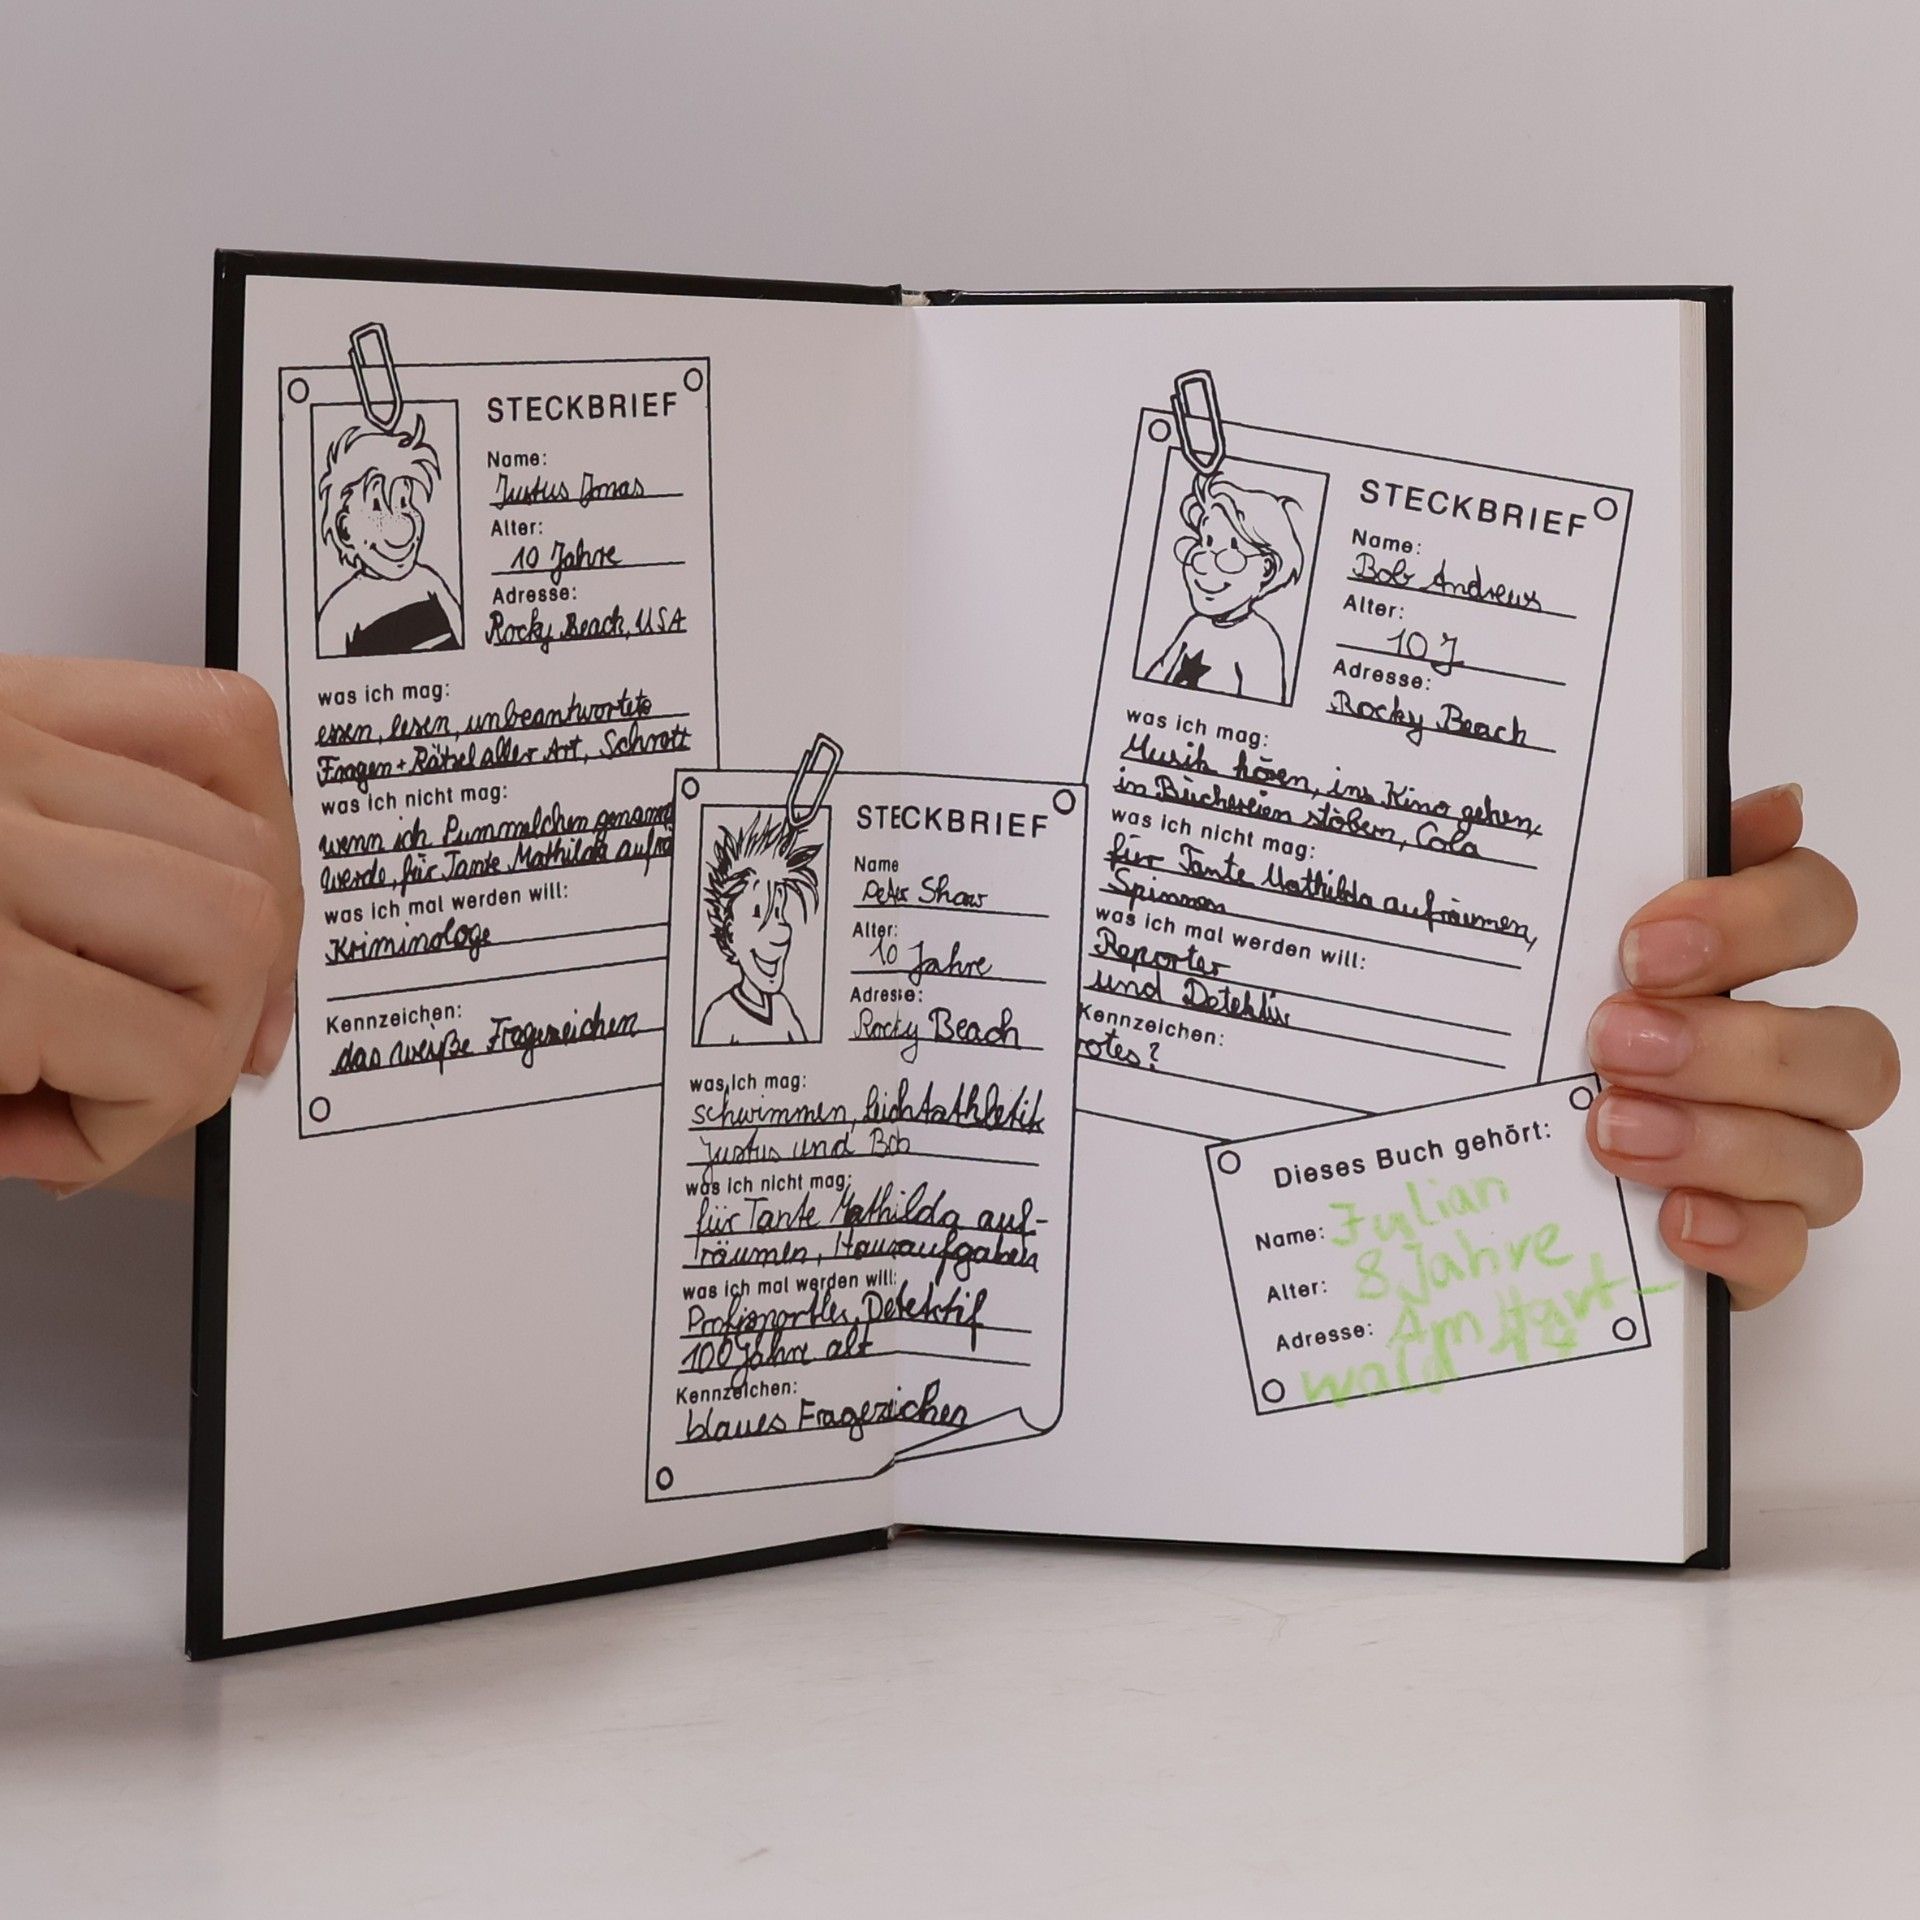 STECKBRIEF
Name:
Justus Jonas
Alter:
10 Jahre
Adresse:
Rocky Beach, USA
was ich mag:
essen, lesen, unbeantwortete
Fragen + Rätsel aller Art, Schrott
was ich nicht mag:
wenn ich Pummelchen genannt
werde, für Tante Mathilda aufrä
was ich mal werden will:
Kriminologe
Kennzeichen:
das weiße Fragezeichen
STECKBRIEF
Name
Peter Shaw
Alter:
10 Jahre
Adresse:
Rocky Beach
was ich mag:
schwimmen, Leichtathletik
Justus und Bob
was ich nicht mag:
für Tante Mathilda auf-
räumen, Hausaufgaben
was ich mal werden will:
Profisportler, Detektif
100 Jahre alt
Kennzeichen:
blaues Fragezeichen
STECKBRIEF
Name:
Bob Andrews
Alter:
10 J
Adresse:
Rocky Beach
was ich mag:
Musik hören, ins Kino gehen,
in Büchereien stöbern, Cola
was ich nicht mag:
für Tante Mathilda aufräumen,
Spinnen
was ich mal werden will:
Reporter
und Detektiv
Kennzeichen:
rotes ?
Dieses Buch gehört:
Name: Julian
Alter: 8 Jahre
Adresse: Am Hart-
wald